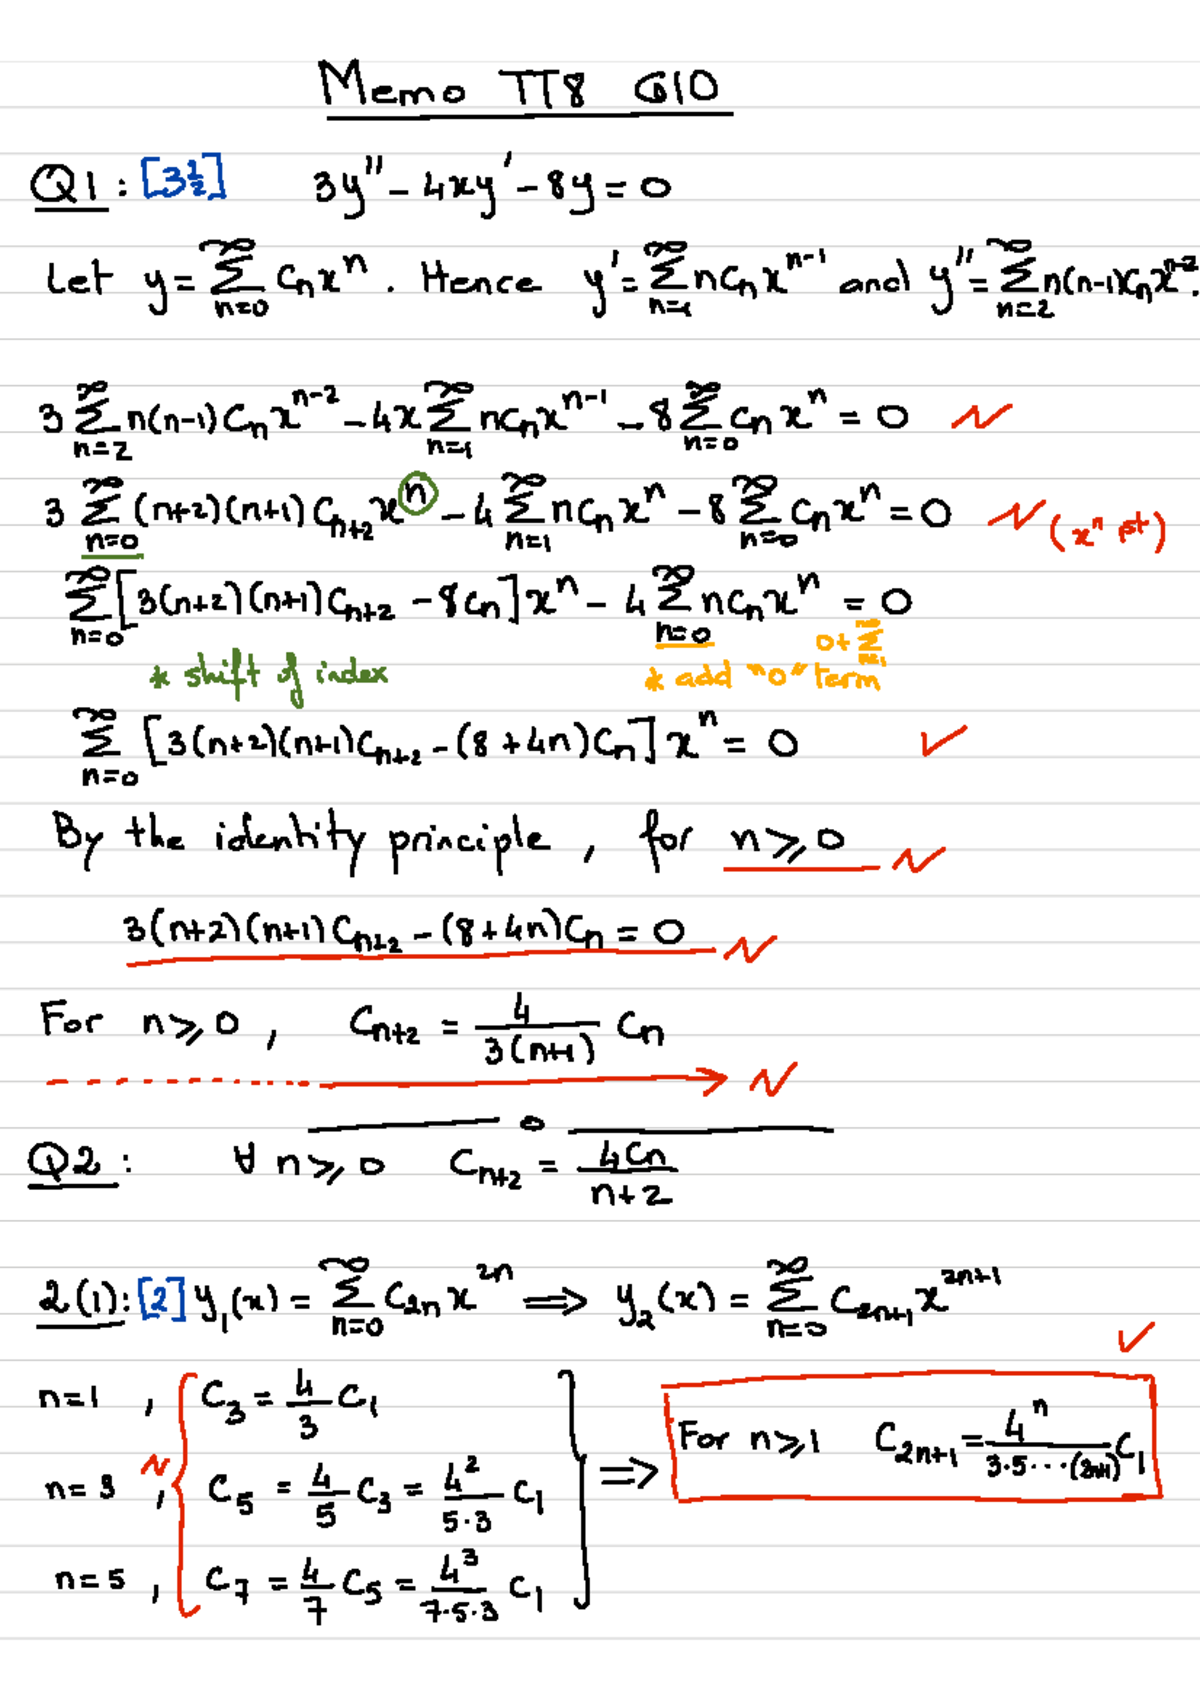 Memo TT8 G10
Q1: [3½] 3y'' - 4xy' - 8y = 0
Let y = ∑_{n=0}^{∞} C_n x^n . Hence y' = ∑_{n=1}^{∞} n C_n x^{n-1} and y'' = ∑_{n=2}^{∞} n(n-1) C_n x^{n-2}.
3 ∑_{n=2}^{∞} n(n-1) C_n x^{n-2} - 4x ∑_{n=1}^{∞} n C_n x^{n-1} - 8 ∑_{n=0}^{∞} C_n x^n = 0
3 ∑_{n=0}^{∞} (n+2)(n+1) C_{n+2} x^n - 4 ∑_{n=1}^{∞} n C_n x^n - 8 ∑_{n=0}^{∞} C_n x^n = 0 (x^n pt)
∑_{n=0}^{∞} [3(n+2)(n+1) C_{n+2} - 8C_n] x^n - 4 ∑_{n=0}^{∞} n C_n x^n = 0
0 + ∑_{n=1}^{∞}
* shift of index * add "0" term
∑_{n=0}^{∞} [3(n+2)(n+1) C_{n+2} - (8+4n) C_n] x^n = 0 ✓
By the identity principle , for n ⩾ 0
3(n+2)(n+1) C_{n+2} - (8+4n) C_n = 0
For n ⩾ 0 , C_{n+2} = 4/(3(n+1)) C_n
Q2 : ∀ n ⩾ 0 C_{n+2} = 4C_n/(n+2)
2(1): [2] y_1(x) = ∑_{n=0}^{∞} C_{2n} x^{2n} ⟹ y_2(x) = ∑_{n=0}^{∞} C_{2n+1} x^{2n+1}
✓
n=1 , C_3 = 4/3 C_1
For n ⩾ 1 C_{2n+1} = 4^n/(3·5···(2n+1)) C_1
n=3 , C_5 = 4/5 C_3 = 4^2/(5·3) C_1 ⟹
n=5 , C_7 = 4/7 C_5 = 4^3/(7·5·3) C_1